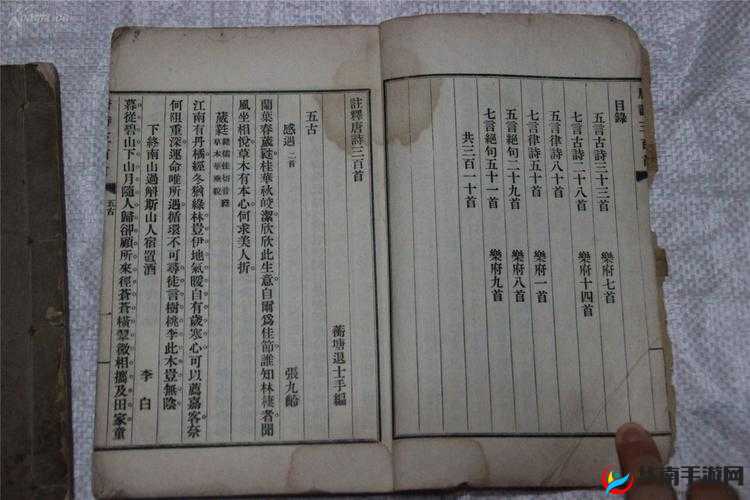 目錄
五言古詩三十三首 樂府七首
七言古詩二十八首 樂府十四首
五言律詩八十首
七言律詩五十首 樂府一首
五言絕句二十九首 樂府八首
七言絕句五十一首 樂府九首
共三百一十首
註釋唐詩三百首
蘅塘退士手編
五古
感遇 二首 張九齡
蘭葉春葳蕤桂華秋皎潔欣欣此生意自爾爲佳節誰知林棲者聞
風坐相悅草木有本心何求美人折
葳蕤
江南有丹橘經冬猶綠林豈伊地氣暖自有歲寒心可以薦嘉客奈
何阻重深運命唯所遇循環不可尋徒言樹桃李此木豈無陰
下終南山過斛斯山人宿置酒 李白
暮從碧山下山月隨人歸卻顧所來徑蒼蒼橫翠微相攜及田家童
五古
华南手游网